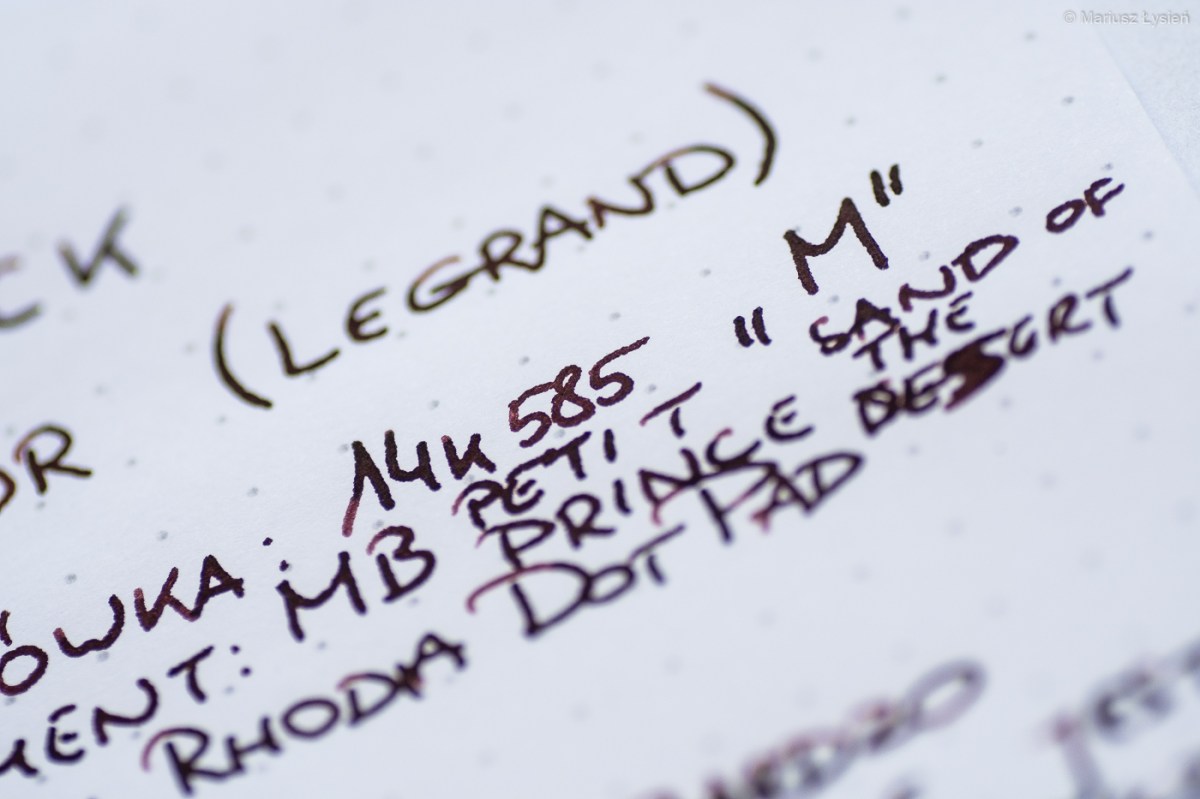 © Mariusz Łysień
CK (LEGRAND)
OR
ÓWKA: 14K 585 "M"
MENT: MB PETIT PRINCE "SAND OF THE DESERT
RHODIA DOT PAD